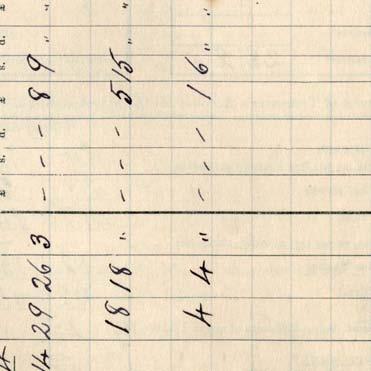 £ s. d. £ s. d. £
14 29 26 3 - - - 8 9 " "
18 18 " - - - 5 15 "
4 4 " - - - 1 6 " "